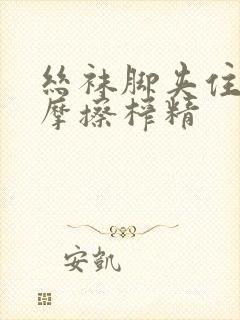 丝袜脚夹住
摩擦榨精
安凯